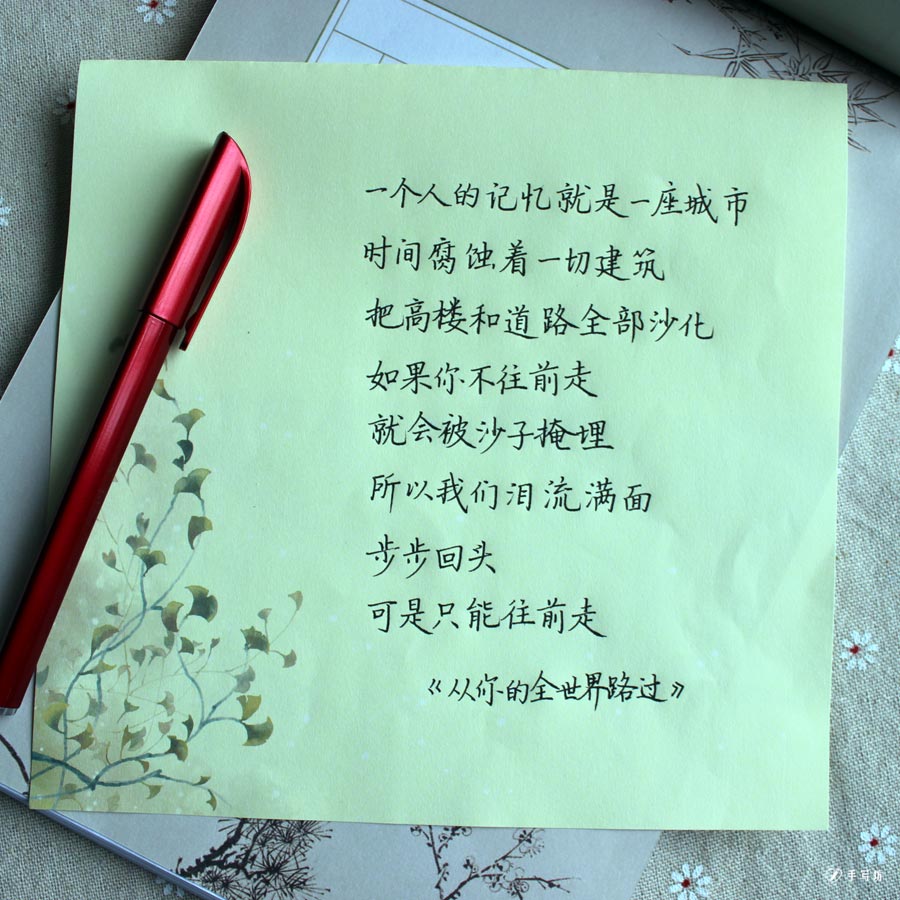 一个人的记忆就是一座城市
时间腐蚀着一切建筑
把高楼和道路全部沙化
如果你不往前走
就会被沙子掩埋
所以我们泪流满面
步步回头
可是只能往前走
《从你的全世界路过》
手写坊